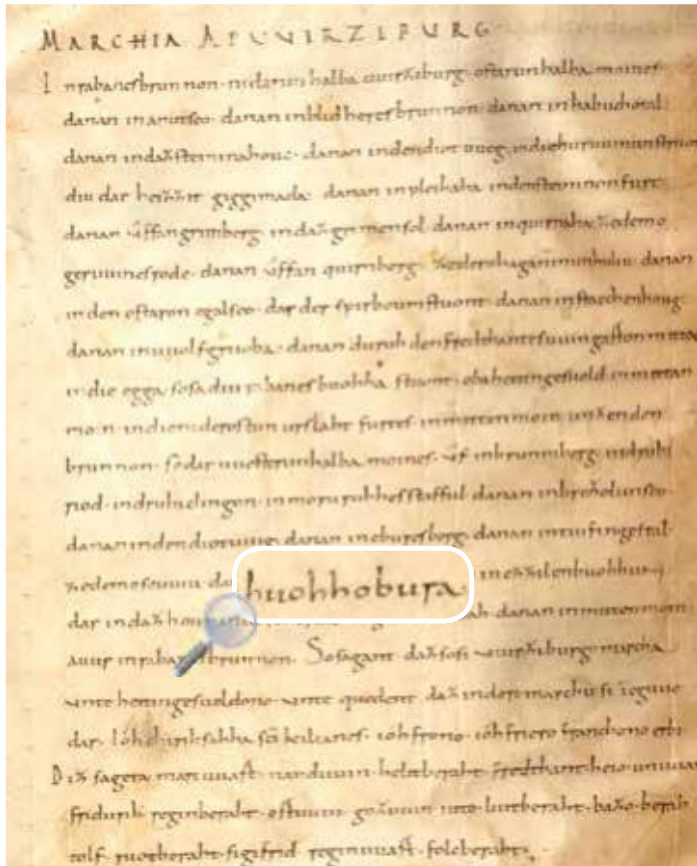 MARCHIA AD UUIRZIBURG
In rabanesbrunnon · nidarun halba uuirziburg · ostarun halba moines ·
danan in anutseo · danan in blidheresbrunnon · danan in habuchotal ·
danan in daz steininahouc · danan in den diot uueg · in die huruuinun struot
diu dar heizzit giggimada · danan in pleihaha in den steininon furt ·
danan úffan grimberg in daz grimen sol danan in quirnaha zedemo
geruuines rode · danan úffan quirnberg zedero haganinun huliu danan
in den ostaron egalseo · dar der spirboum stuont · danan in stacchenhoug
danan in uuolfgruoba · danan duruh den fredthantes uuingarton mittan
in die egga sosa diu rabanes buohha stuont · oba heitingesueld in mittan
moin in die niderostun urslaht furtes in mitten moin unzenden
brunnon · sodar uuesterun halba moines · úf in brunniberg indruhi
riod · indruhiclingon · in moruhhesstafful danan in brezelunseo ·
danan in den diotuueg danan in eburesberg danan in tiufingestal
zedemo seuuiu da huohhobura in ezzilenbuohhun
dar in daz houg danan in mitten moin
auur in rabanesbrunnon. Sosagant daz sosi uuirziburg marcha
unte heitingesueldono · unte quedent daz in dero marchu si ieguuar
dar · ióh chirihsahha sancti kilianes · ióh frono · ióh friero franchono erbi ·
Diz sageta marcuuart nanduuin helitberaht fredthant heio unuuan
fridurih reginberaht · ortuuin gozuuin iuto liutberaht · bazo beraht
rolf ruotberaht · sigifrid reginuuart · folcberaht ·